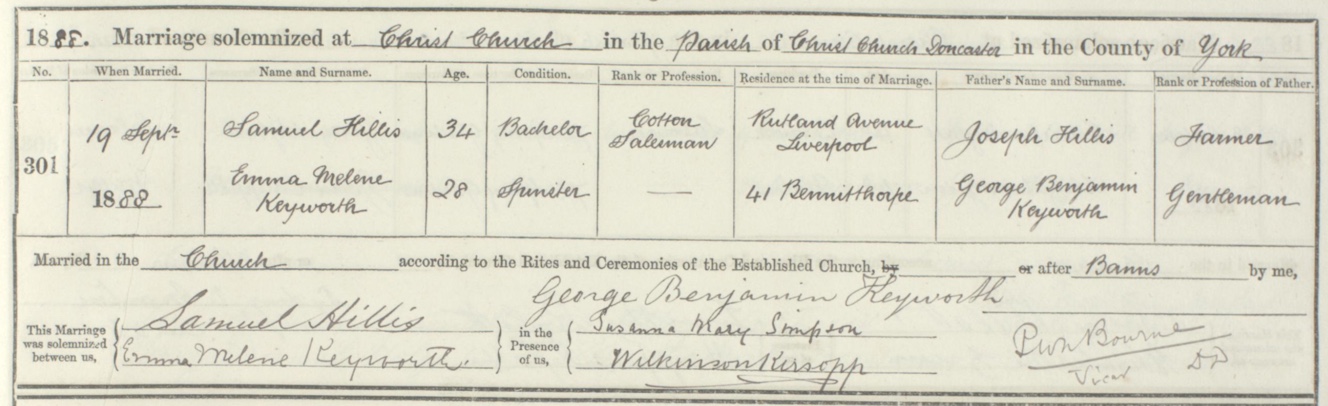 1888. Marriage solemnized at Christ Church in the Parish of Christ Church Doncaster in the County of York
No. When Married. Name and Surname. Age. Condition. Rank or Profession. Residence at the time of Marriage. Father's Name and Surname. Rank or Profession of Father.
301
19 Septr
1888
Samuel Hillis 34 Bachelor Cotton Salesman Rutland Avenue Liverpool Joseph Hillis Farmer
Emma Melene Keyworth 28 Spinster — 41 Bennitthorpe George Benjamin Keyworth Gentleman
Married in the Church according to the Rites and Ceremonies of the Established Church, by or after Banns by me,
George Benjamin Keyworth
This Marriage was solemnized between us,
Samuel Hillis
Emma Melene Keyworth.
in the Presence of us,
Susanna Mary Simpson
Wilkinson Kirsopp
Bourne
Vicar DD